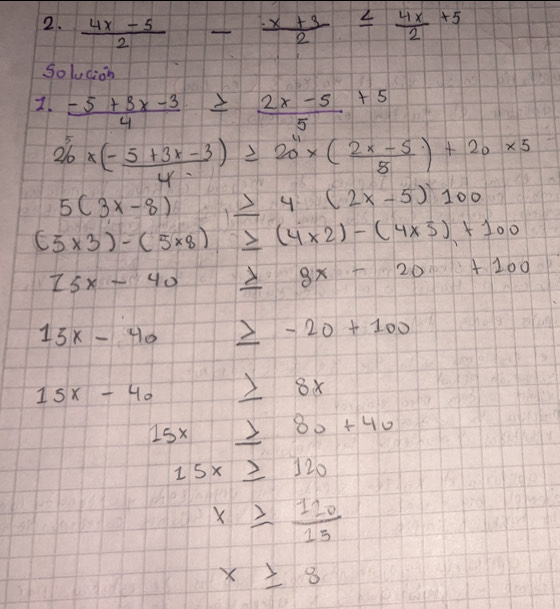 2. (4x - 5)/2 - (x + 3)/2 ≤ 4x/2 + 5
Solución
1. (-5 + 3x - 3)/4 ≥ (2x - 5)/5 + 5
20 × (-5 + 3x - 3)/4 ≥ 20 × (2x - 5)/5 + 20 × 5
5(3x - 8) ≥ 4 (2x - 5) 100
(5×3) - (5×8) ≥ (4×2) - (4×5) + 100
15x - 40 ≥ 8x - 20 + 100
15x - 40 ≥ -20 + 100
15x - 40 ≥ 8x
15x ≥ 80 + 40
15x ≥ 120
x ≥ 120/15
x ≥ 8